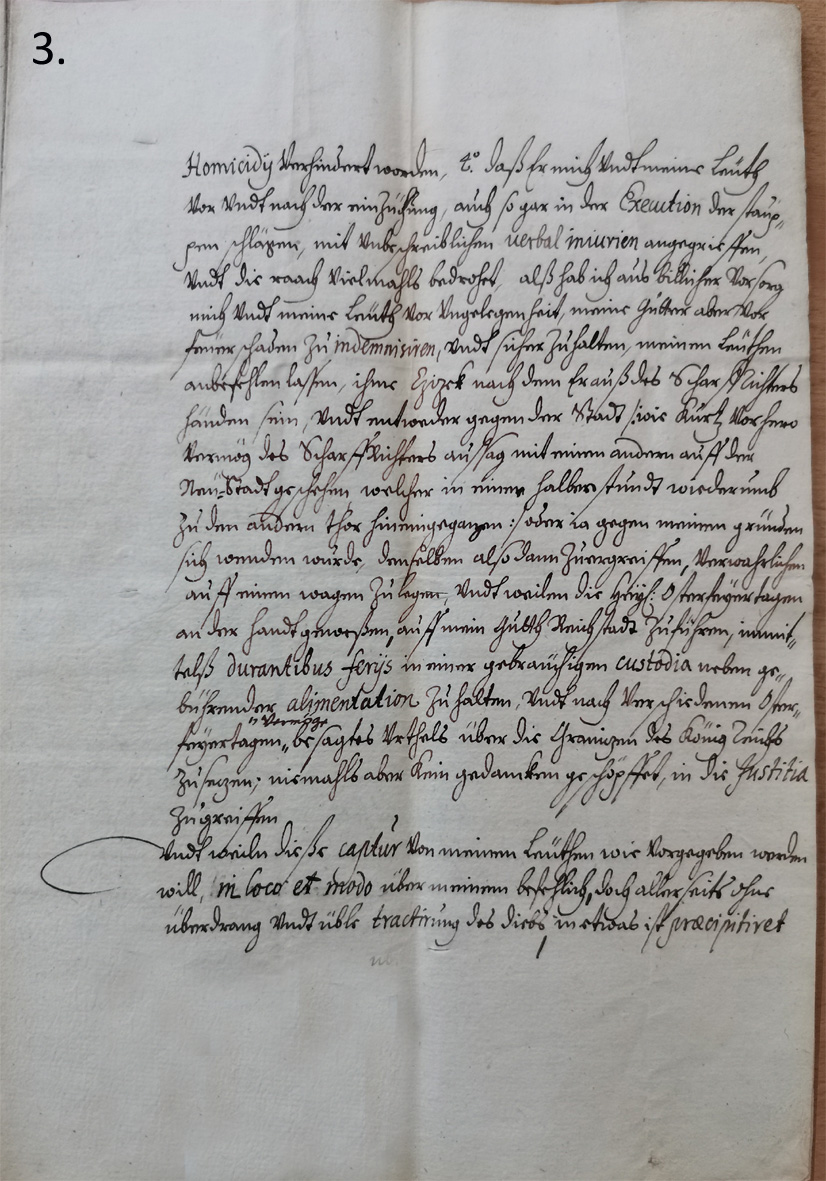 3.
Homicidÿ Verhindert worden, 4.° daß Er mich Vndt meine Leüth
Vor Vndt nach der einZühung, auch so gar in der Execution der staup-
pen schläzen, mit Vnbeschreiblichen verbal iniurien angegrieffen,
Vndt die raach Vielmahls bedrohet, alß hab ich aus billicher Vorsorg
mich Vndt meine Leüth Vor Vngelegenheit, meine Gütter aber Vor
feüer schaden Zu indemnisiren, Vndt sicher Zuhalten, meinen Leüthen
anbefehlen lassen, ihme nach dem Er auß des ScharffRichters
händen sein, Vndt entweder gegen der Stadt /:wie Kurtz Vorhero
Vermög des ScharffRichters aussag mit einem andern auff der
Neü-Stadt geschehen, welcher in einer halben stundt wiederumb
Zu den andern thor hineingegangen:/ oder ia gegen meinem gründen
sich wenden würde, denselben alsodann Zuergreiffen, Verwahrlichen
auff einem wagen Zulegen, Vndt weilen die Heyl: Osterfeyertagen
an der handt geweßen, auff mein Gutth Reichstadt Zuführen, inmit-
telß durantibus ferijs in einer gebräuchigen custodia neben ge-
bührender alimentation Zu halten, Vndt nach Verschiedenen Oster-
feyertagen, Vermöge besagtes Vrthels über die Gränizen des König Reichs
Zusezen; niemahls aber Kein gedanken geschöpffet, in die Justitia
Zugreiffen
Vndt weiln dieße captur Von meinem Leüthen wie Vorgegeben werden
will, in loco et modo über meinem befehlich, doch allerseits ohne
überdrang Vndt üble tractirung des diebs, in etwas ist præcipitiret